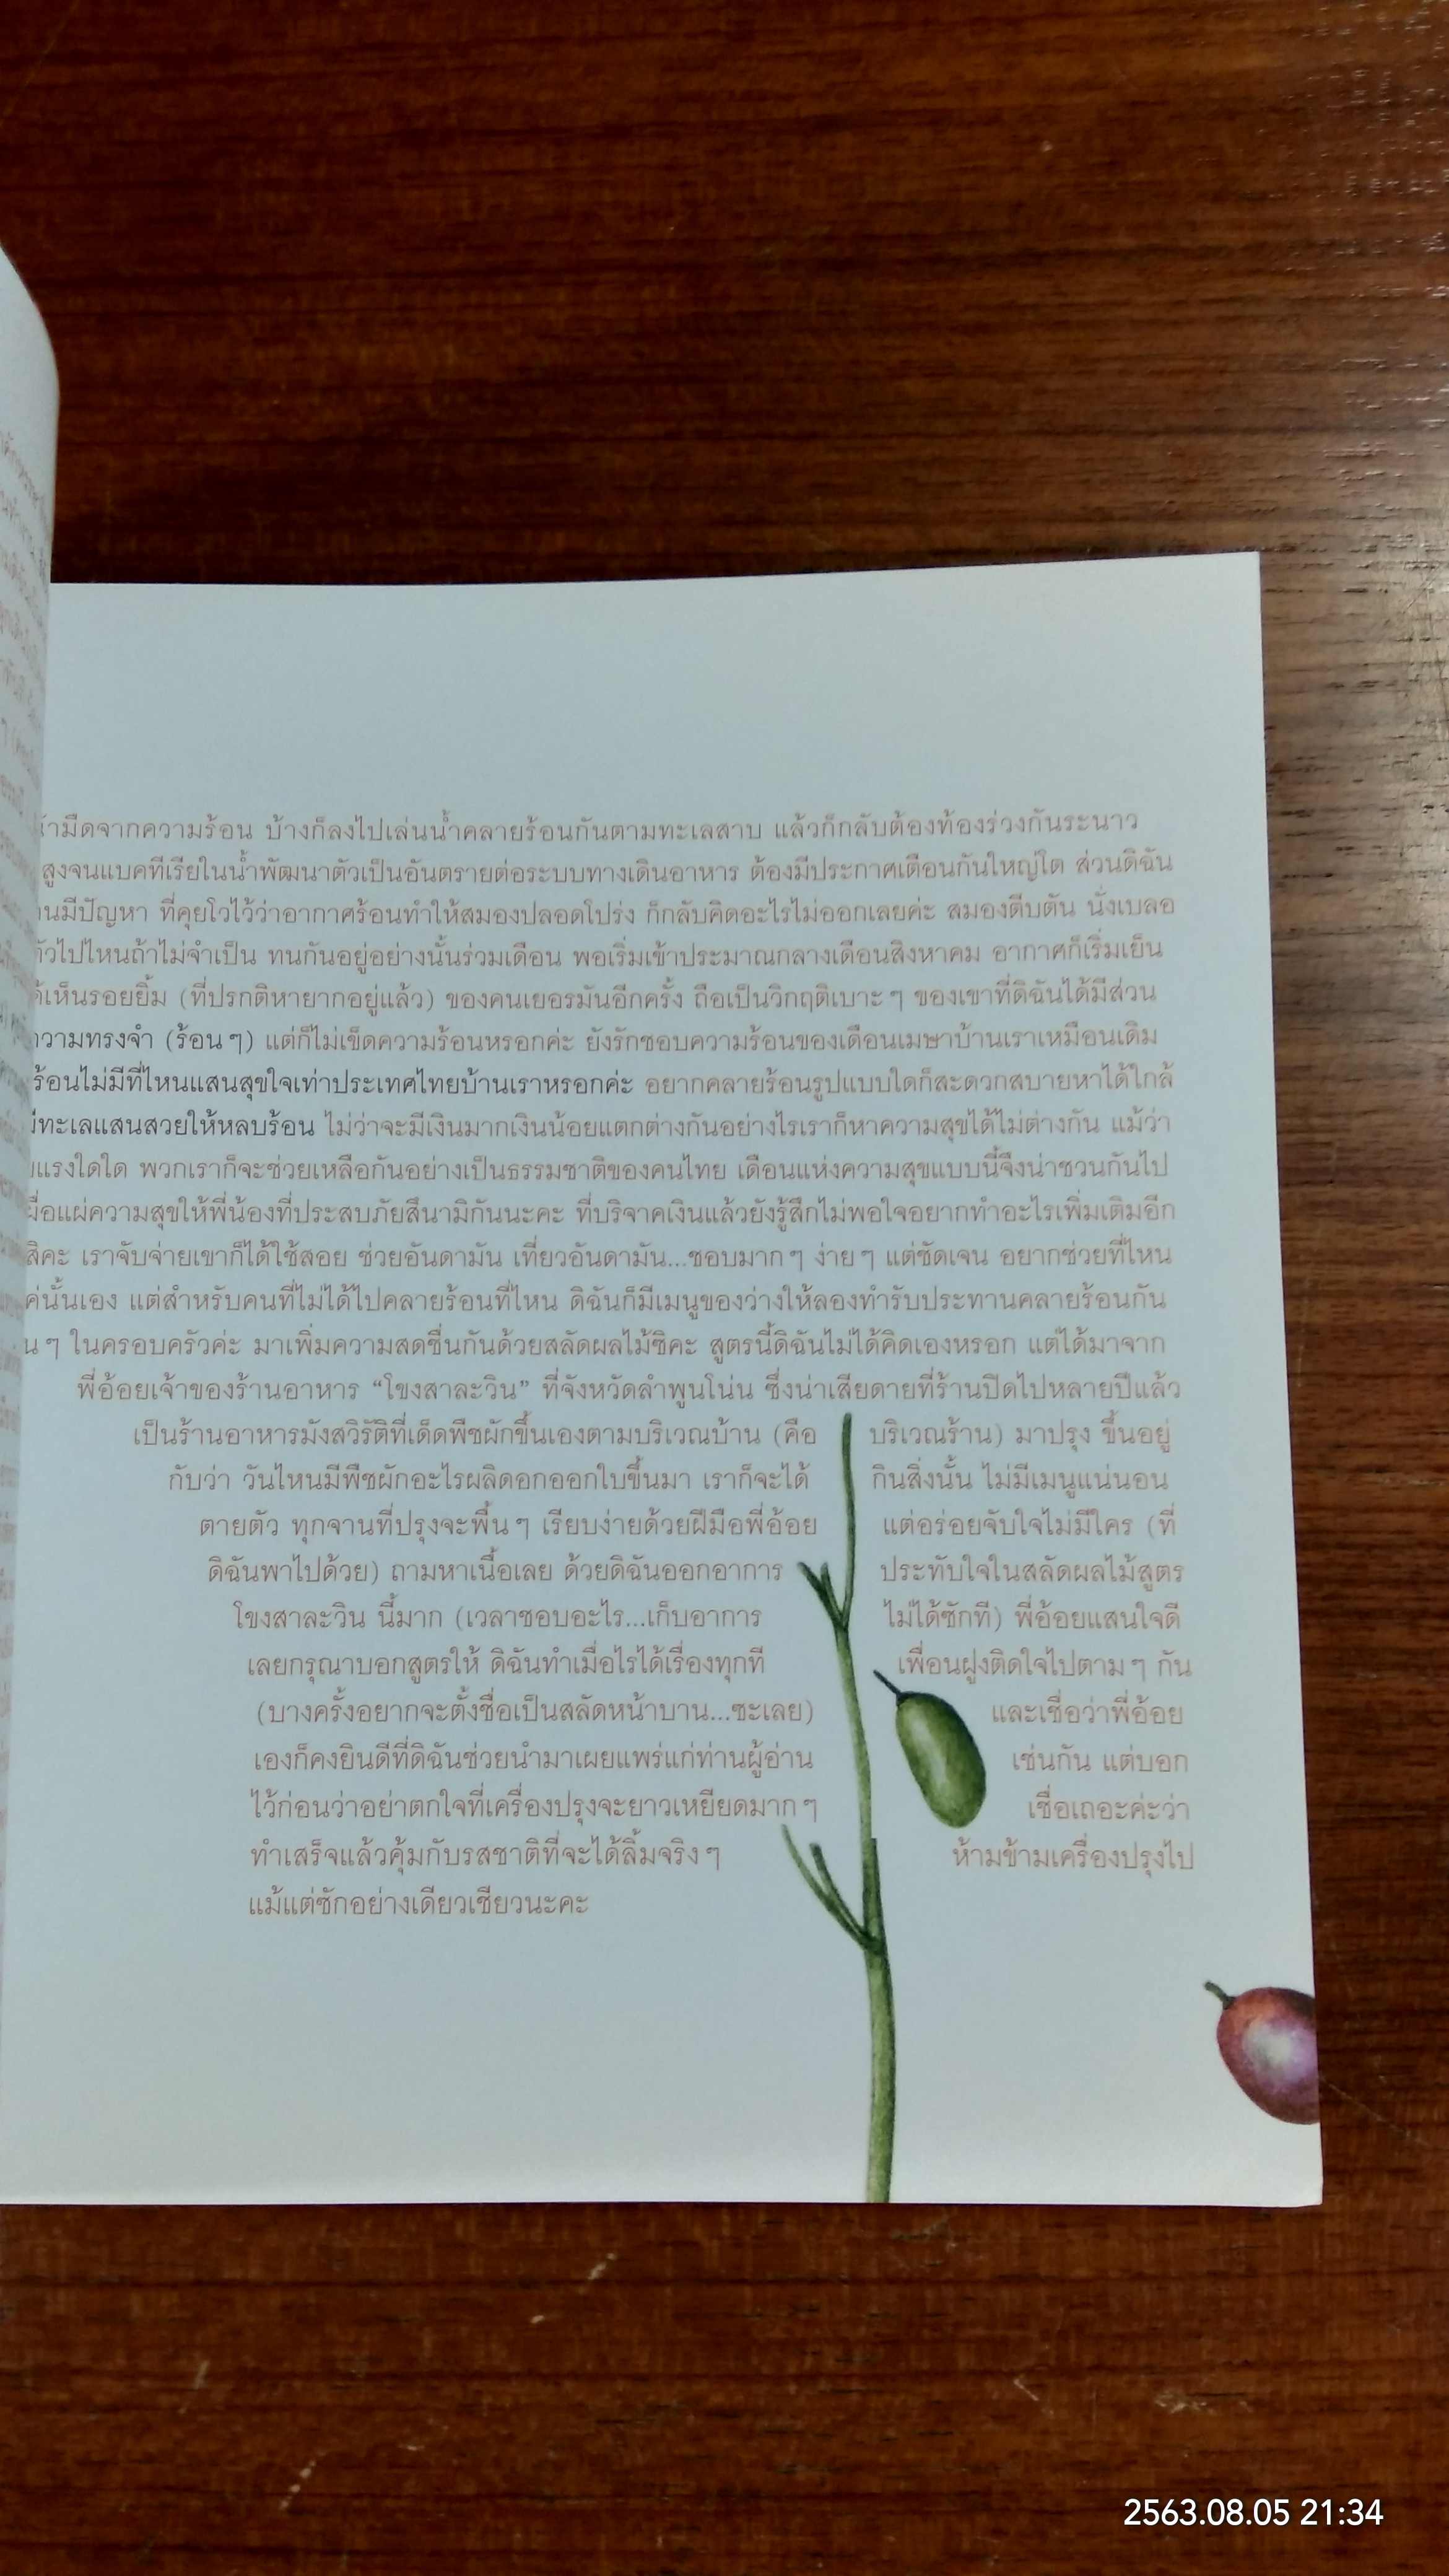 จากความร้อน บ้างก็ลงไปเล่นน้ำคลายร้อนกันตามทะเลสาบ แล้วก็กลับต้องท้องร่วงกันระนาว
สูงจนแบคทีเรียในน้ำพัฒนาตัวเป็นอันตรายต่อระบบทางเดินอาหาร ต้องมีประกาศเตือนกันใหญ่โต ส่วนดิฉัน
มีปัญหา ที่คุยโวไว้ว่าอากาศร้อนทำให้สมองปลอดโปร่ง ก็กลับคิดอะไรไม่ออกเลยค่ะ สมองตีบตัน นั่งเบลอ
ไปไหนถ้าไม่จำเป็น ทนกันอยู่อย่างนั้นร่วมเดือน พอเริ่มเข้าประมาณกลางเดือนสิงหาคม อากาศก็เริ่มเย็น
เห็นรอยยิ้ม (ที่ปรกติหายากอยู่แล้ว) ของคนเยอรมันอีกครั้ง ถือเป็นวิกฤติเบาะๆ ของเขาที่ดิฉันได้มีส่วน
ความทรงจำ (ร้อนๆ) แต่ก็ไม่เข็ดความร้อนหรอกค่ะ ยังรักชอบความร้อนของเดือนเมษาบ้านเราเหมือนเดิม
ร้อนไม่มีที่ไหนแสนสุขใจเท่าประเทศไทยบ้านเราหรอกค่ะ อยากคลายร้อนรูปแบบใดก็สะดวกสบายหาได้ใกล้
มีทะเลแสนสวยให้หลบร้อน ไม่ว่าจะมีเงินมากเงินน้อยแตกต่างกันอย่างไรเราก็หาความสุขได้ไม่ต่างกัน แม้ว่า
แรงใดใด พวกเราก็จะช่วยเหลือกันอย่างเป็นธรรมชาติของคนไทย เดือนแห่งความสุขแบบนี้จึงน่าชวนกันไป
เผื่อแผ่ความสุขให้พี่น้องที่ประสบภัยสึนามิกันนะคะ ที่บริจาคเงินแล้วยังรู้สึกไม่พอใจอยากทำอะไรเพิ่มเติมอีก
สิคะ เราจับจ่ายเขาก็ได้ใช้สอย ช่วยอันดามัน เที่ยวอันดามัน...ชอบมากๆ ง่ายๆ แต่ชัดเจน อยากช่วยที่ไหน
ค่นั้นเอง แต่สำหรับคนที่ไม่ได้ไปคลายร้อนที่ไหน ดิฉันก็มีเมนูของว่างให้ลองทำรับประทานคลายร้อนกัน
นๆ ในครอบครัวค่ะ มาเพิ่มความสดชื่นกันด้วยสลัดผลไม้ซิคะ สูตรนี้ดิฉันไม่ได้คิดเองหรอก แต่ได้มาจาก
พี่อ้อยเจ้าของร้านอาหาร “โขงสาละวิน” ที่จังหวัดลำพูนโน่น ซึ่งน่าเสียดายที่ร้านปิดไปหลายปีแล้ว
เป็นร้านอาหารมังสวิรัติที่เด็ดพืชผักขึ้นเองตามบริเวณบ้าน (คือ บริเวณร้าน) มาปรุง ขึ้นอยู่
กับว่า วันไหนมีพืชผักอะไรผลิดอกออกใบขึ้นมา เราก็จะได้ กินสิ่งนั้น ไม่มีเมนูแน่นอน
ตายตัว ทุกจานที่ปรุงจะพื้นๆ เรียบง่ายด้วยฝีมือพี่อ้อย แต่อร่อยจับใจไม่มีใคร (ที่
ดิฉันพาไปด้วย) ถามหาเนื้อเลย ด้วยดิฉันออกอาการ ประทับใจในสลัดผลไม้สูตร
โขงสาละวิน นี้มาก (เวลาชอบอะไร...เก็บอาการ ไม่ได้ซักที) พี่อ้อยแสนใจดี
เลยกรุณาบอกสูตรให้ ดิฉันทำเมื่อไรได้เรื่องทุกที เพื่อนฝูงติดใจไปตามๆ กัน
(บางครั้งอยากจะตั้งชื่อเป็นสลัดหน้าบาน...ซะเลย) และเชื่อว่าพี่อ้อย
เองก็คงยินดีที่ดิฉันช่วยนำมาเผยแพร่แก่ท่านผู้อ่าน เช่นกัน แต่บอก
ไว้ก่อนว่าอย่าตกใจที่เครื่องปรุงจะยาวเหยียดมากๆ เชื่อเถอะค่ะว่า
ทำเสร็จแล้วคุ้มกับรสชาติที่จะได้ลิ้มจริงๆ ห้ามข้ามเครื่องปรุงไป
แม้แต่ซักอย่างเดียวเชียวนะคะ
2563.08.05 21:34